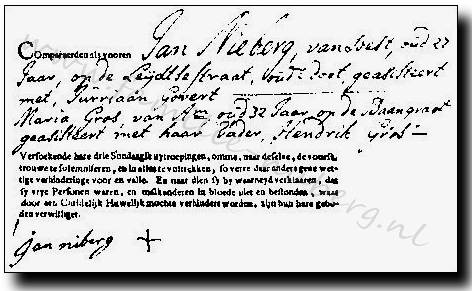 Compareerden als vooren Jan Nieberg, van Soest, oud 27
Jaar, op de Leydsestraat, Ouds. doot, geasisteert
met, Jurriaan Govert
Maria Gros, van Am. oud 32 Jaar, op de Baangragt
geasisteert met haar Vader, Hendrik Gros
Versoekende hare drie Sondaagse uytroepingen, omme, naar deselve, de voorsz.
trouwe te solemniseren, en in alles te voltrekken, so verre daar anders geene wet-
tige verhinderinge voor en valle. En naar dien sy by waarheyd verklaarden, dat
sy vrye Persoonen waren, en malkanderen in bloede niet en bestonden, waar
door een Christelijk Huwelijk mochte verhindert worden, zijn hun hare gebo-
den verwilliget.
jan niberg +